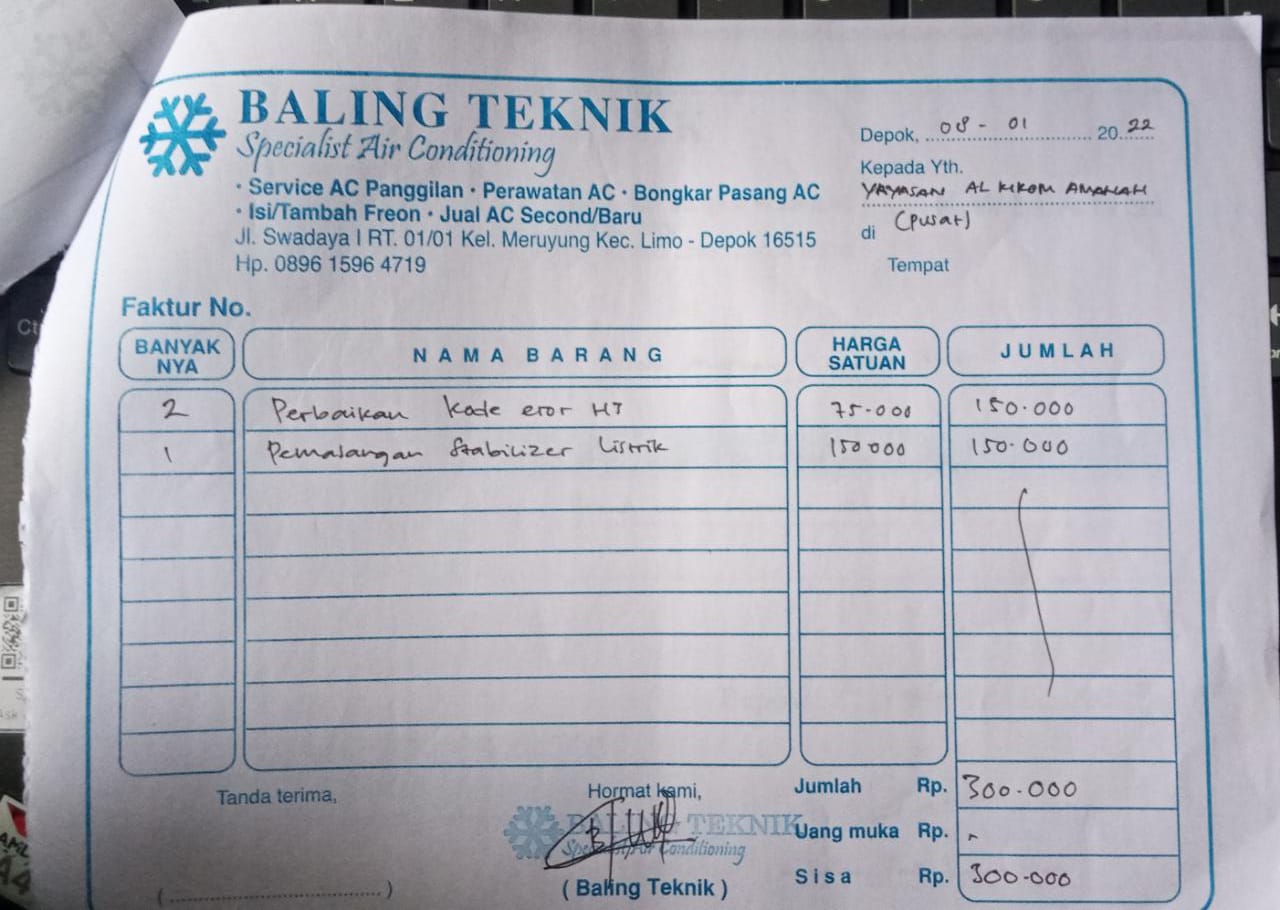 BALING TEKNIK
Specialist Air Conditioning
· Service AC Panggilan · Perawatan AC · Bongkar Pasang AC
· Isi/Tambah Freon · Jual AC Second/Baru
Jl. Swadaya I RT. 01/01 Kel. Meruyung Kec. Limo - Depok 16515
Hp. 0896 1596 4719
Depok, 08 - 01 2022
Kepada Yth.
YAYASAN AL HIKOM AMANAH
di (pusat)
Tempat
Faktur No.
BANYAK NYA NAMA BARANG HARGA SATUAN JUMLAH
2 Perbaikan kode eror H7 75.000 150.000
1 Pemasangan Stabilizer Listrik 150.000 150.000
Tanda terima,
Hormat kami,
BALING TEKNIK
Specialist Air Conditioning
( Baling Teknik )
Jumlah Rp. 300.000
Uang muka Rp. -
Sisa Rp. 300.000